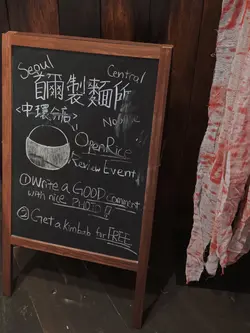 Seoul Central
首爾製麵所
<中環分店> Noodle
OpenRice
Review Event
①Write a GOOD comment
with nice PHOTO!!
②Get a kimbab for FREE